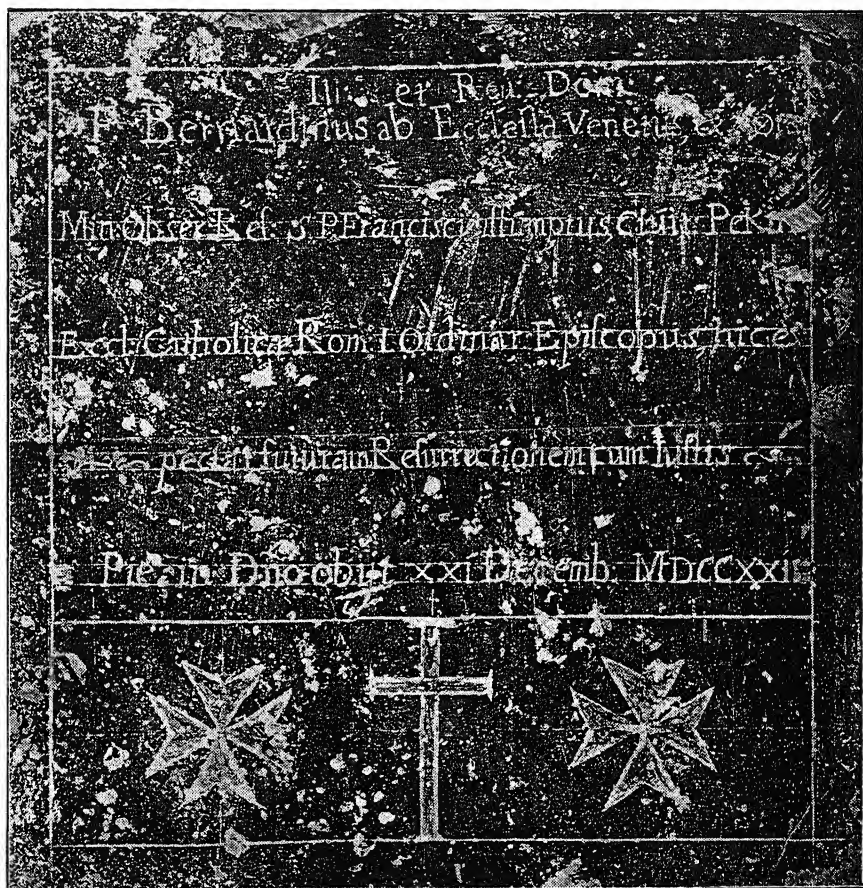 Ill et Reu Dom
F Bernardinus ab Ecclesia Venetus, ex Or
Min: Obser: Ref: S. P. Francisci assumptus, Ciuit: Pekin
Eccl: Catholicæ Rom: I Ordinar: Episcopus, hic ex
pectat futuram Resurrectionem cum Iustis
Pie in Dño obijt XXI Decemb: MDCCXXI